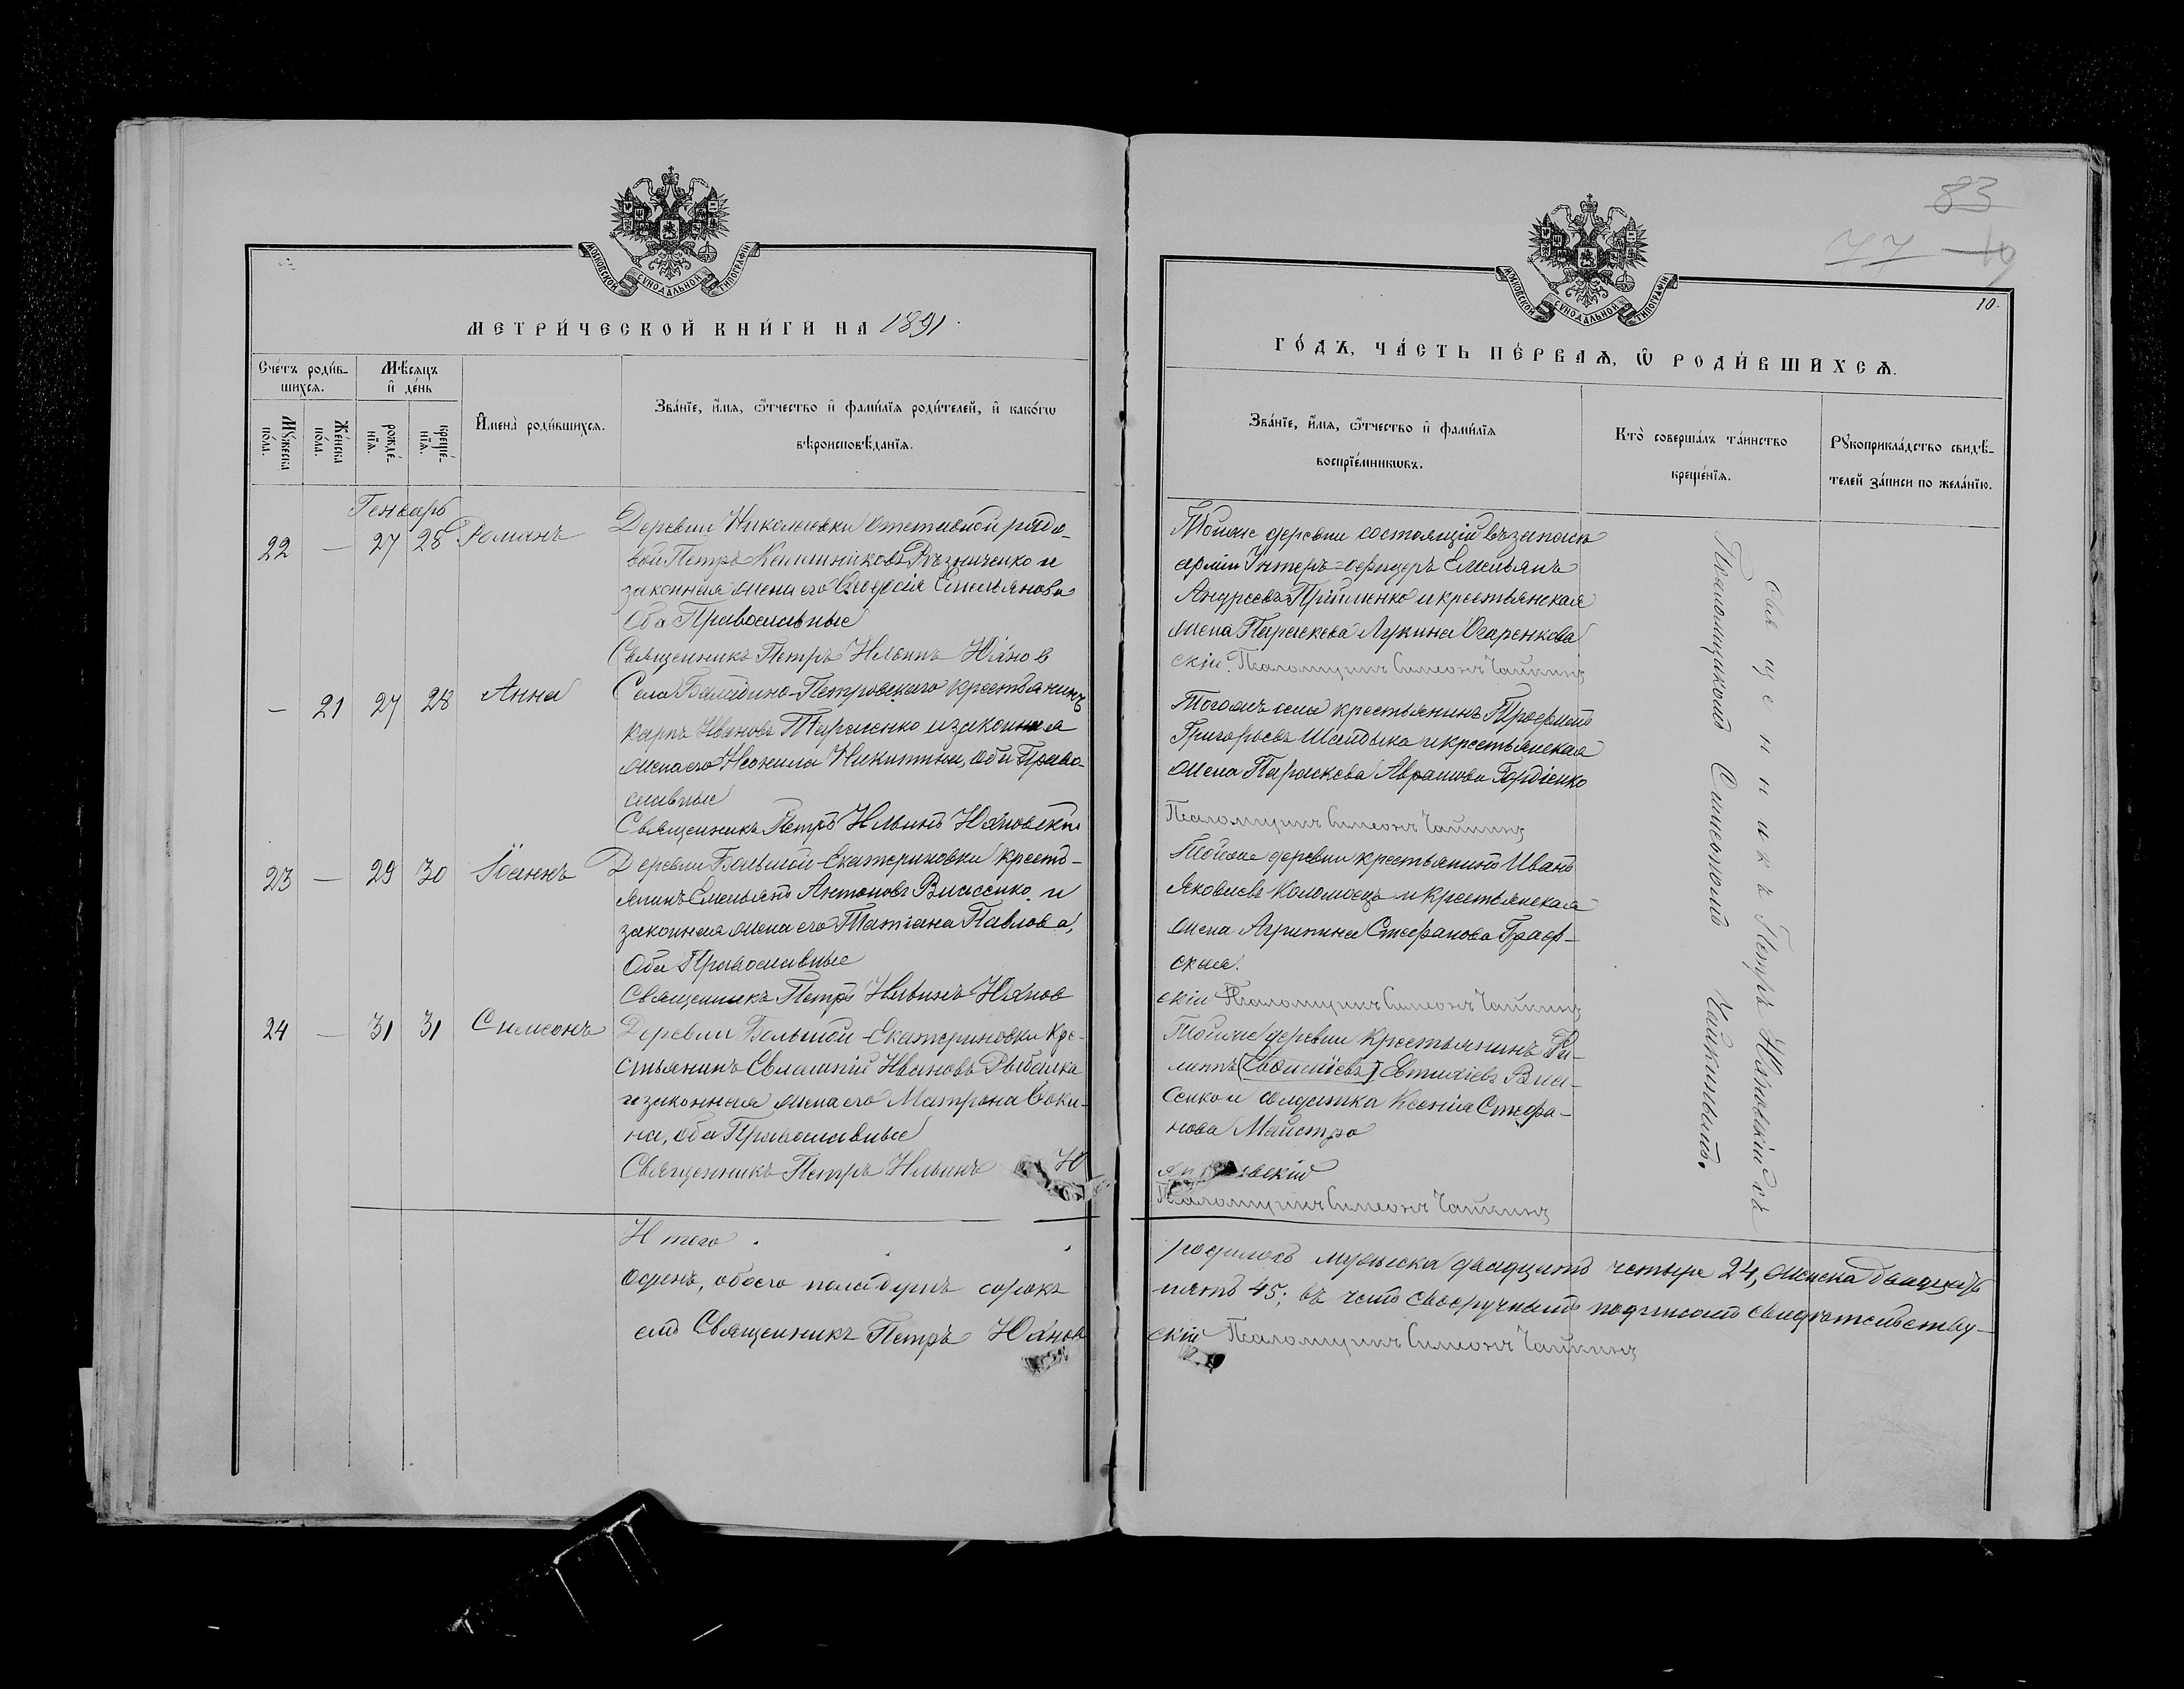 МОСКОВСКОЙ СѴНОДАЛЬНОЙ ТИПОГРАФІИ
МЕТРИ́ЧЕСКОЙ КНИ́ГИ НА 1891.
Сче́тъ роди́в-
шихся.
Мѣ́сяцъ
и҆ де́нь
Мꙋ́жеска
по́ла.
Же́нска
по́ла.
рожде́-
нїя.
креще́-
нїя.
И҆мена̀ роди́вшихся.
Зва́нїе, и҆́мя, ѻ҆́тчество и҆ фами́лїя роди́телей, и҆ како́гѡ
вѣроисповѣ́данїя.
Генварь
22 — 27 28 Романъ
Деревни Николаевки отставной рядо-
вой Петръ Рѣзниченко и
законная жена его Ѳеодосія Емельянова
Оба Православные
Священникъ Петръ Ильинъ Юхнов
— 21 27 28 Анна
Села Петровскаго крестьянинъ
Карпъ Ивановъ Тараненко и законная
жена его Неонила Никитина, оба Право-
славные
Священникъ Петръ Ильинъ Юхновскій
23 — 29 30 Іоаннъ
Деревни Большой-Екатериновки крестъ-
янинъ Емельянъ Антоновъ Власенко и
законная жена его Татіана Павлова,
Оба Православные
Священникъ Петръ Ильинъ Юхнов
24 — 31 31 Симеонъ
Деревни Большой-Екатериновки кре-
стьянинъ Евлампій Ивановъ Рыбалка
и законная жена его Матрона Ѳоки-
на, оба Православные
Священникъ Петръ Ильинъ Ю
Итого . . .
одинъ, обоего пола душъ сорокъ
емъ Священникъ Петръ Юхнов
83
77
10
10.
МОСКОВСКОЙ СѴНОДАЛЬНОЙ ТИПОГРАФІИ
ГО́ДЪ, ЧА́СТЬ ПЕ́РВАѦ, Ѡ҆ РОДИ́ВШИХСѦ.
Зва́нїе, и҆́мя, ѻ҆́тчество и҆ фами́лїя
воспрїе́мникѡвъ.
Кто̀ соверша́лъ та́инство
креще́нїя.
Рꙋкоприкла́дство свидѣ́-
телей за́писи по жела́нїю.
Тойже деревни состоящій въ запасѣ
арміи Унтеръ-офицеръ Емельянъ
Андреевъ Прійменко и крестьянская
жена Параскева Лукина Огаренкова
скій Псаломщикъ Симеонъ Чайкинъ
Тогожъ села крестьянинъ Трофимъ
Григорьевъ Шандыка и крестьянская
жена Параскева Аврамова Гордіенко
Псаломщикъ Симеонъ Чайкинъ
Тойже деревни крестьянинъ Иванъ
Яковлевъ Коломоецъ и крестьянская
жена Агрипина Стефанова Граф-
ская.
скій Псаломщикъ Симеонъ Чайкинъ
Тойже деревни крестьянинъ Фи-
липпъ Евтихіевъ Вла-
сенко и солдатка Ксенія Стефа-
нова Майстро
скій
Псаломщикъ Симеонъ Чайкинъ
Священникъ Петръ Юхновскій съ
Псаломщикомъ Симеономъ Чайкинымъ.
родилось мужеска двадцать четыре 24, женска двадцать
пять 45; въ чемъ своеручнымъ подписомъ свидѣтельству-
скій Псаломщикъ Симеонъ Чайкинъ